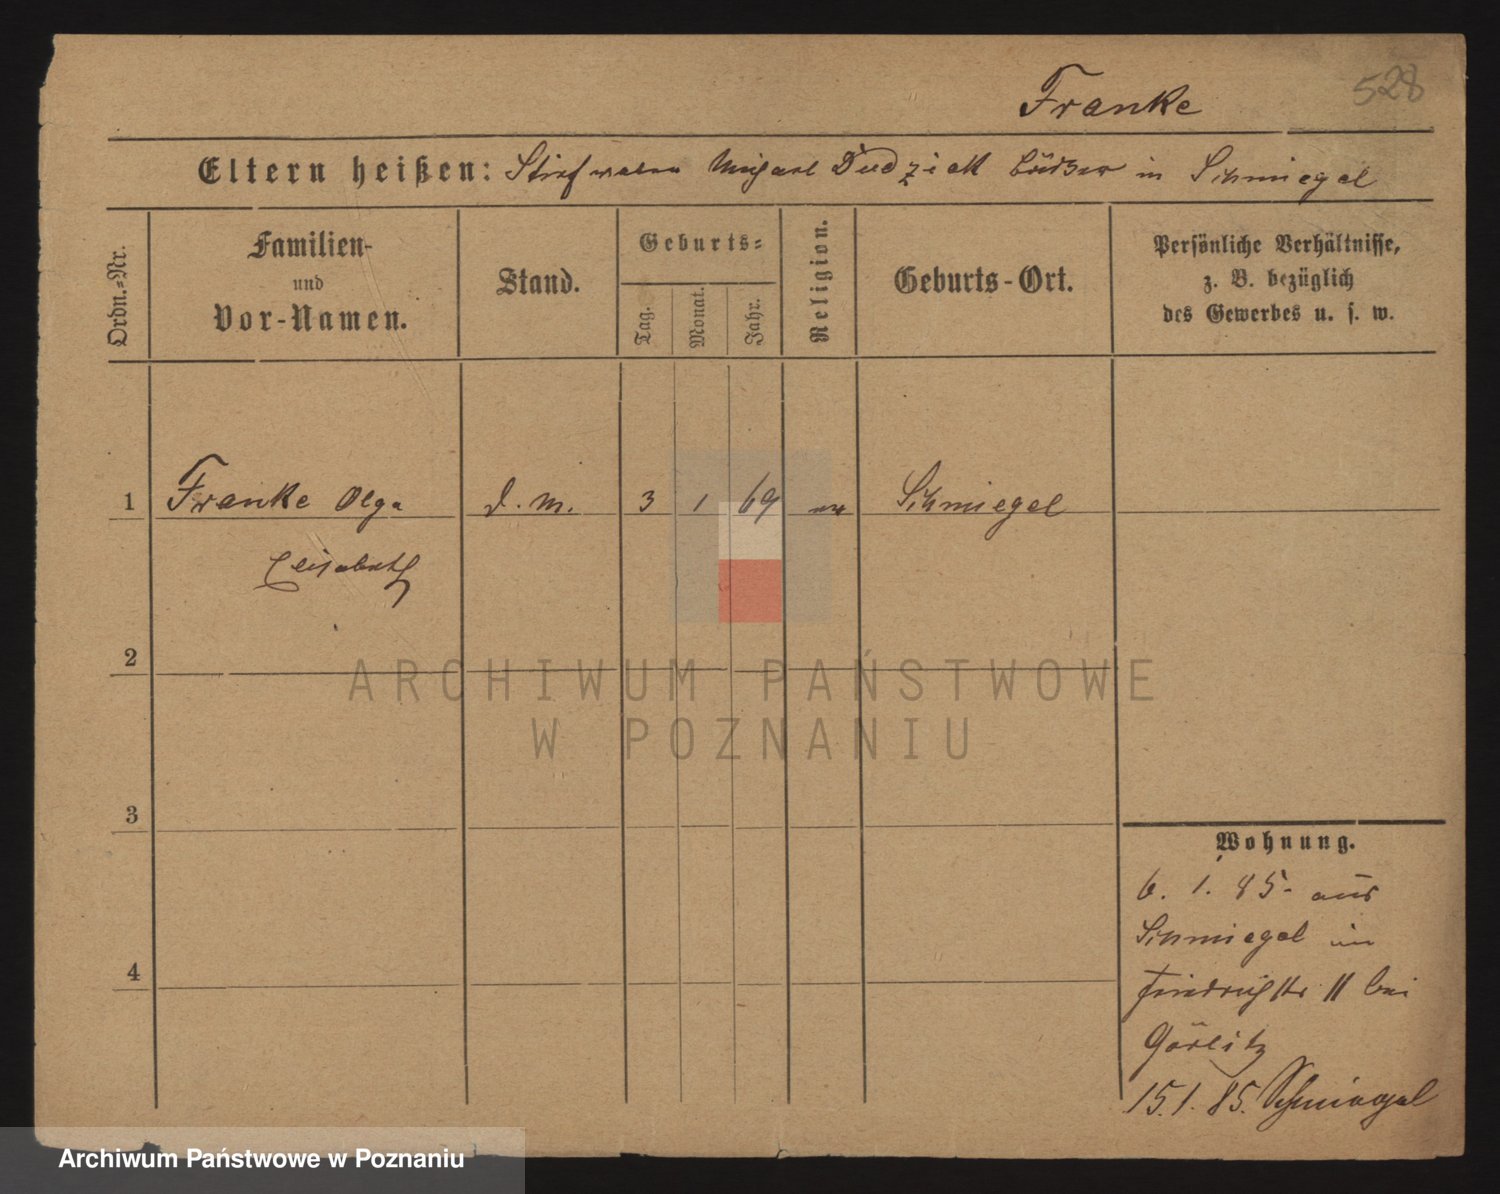 528
Franke
Eltern heißen: Stiefvater Michael Dudziak in Schmiegel
Ordn.-Nr.
Familien-
und
Vor-Namen.
Stand.
Geburts-
Tag.
Monat.
Jahr.
Religion.
Geburts-Ort.
Persönliche Verhältnisse,
z. B. bezüglich
des Gewerbes u. s. w.
1 Franke Olga d. M. 3 1 69 Schmiegel
Elisabeth
2
3
4
Wohnung.
6. 1. 85 - aus
Schmiegel in
Friedrichstr 11 bei
Görlitz
15.1.85. Schmiegel
ARCHIWUM PAŃSTWOWE
W POZNANIU
Archiwum Państwowe w Poznaniu